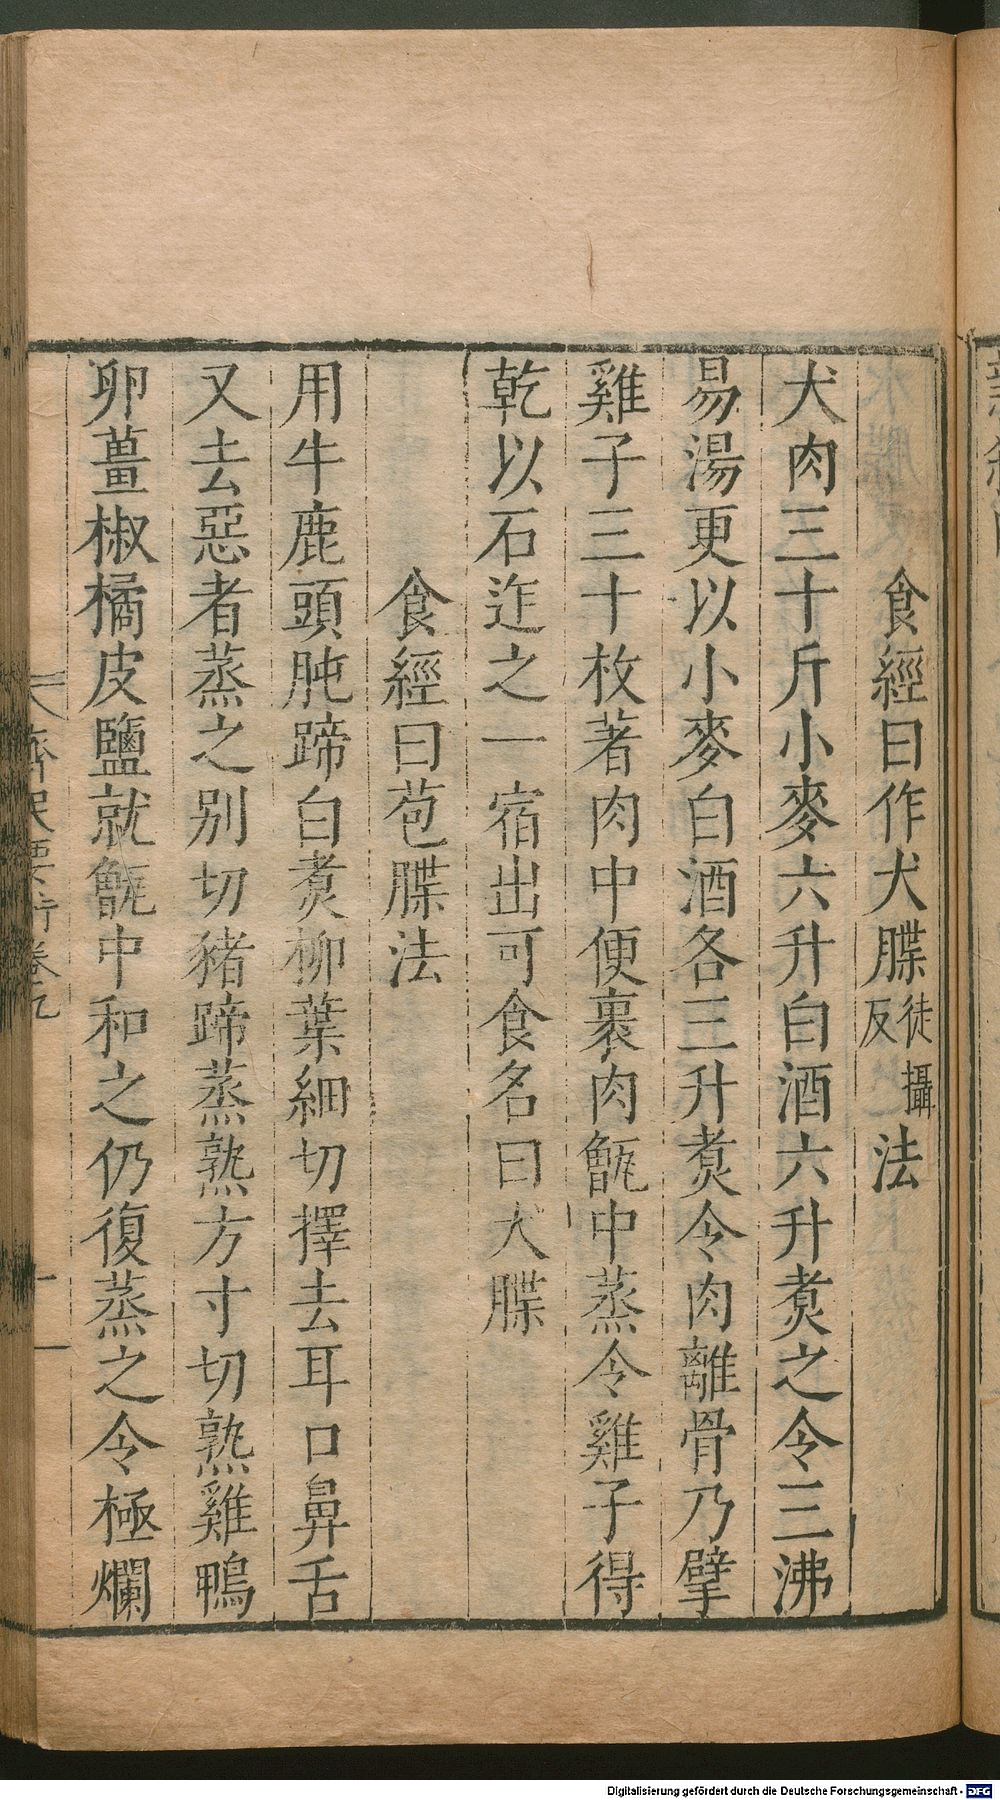 食經曰作犬䐑徒攝反法
犬肉三十斤小麥六升白酒六升煑之令三沸
易湯更以小麥白酒各三升煑令肉離骨乃擘
雞子三十枚著肉中便裹肉甑中蒸令雞子得
乾以石迮之一宿出可食名曰犬䐑
食經曰苞䐑法
用牛鹿頭肫蹄白煑柳葉細切擇去耳口鼻舌
又去惡者蒸之别切豬蹄蒸熟方寸切熟雞鴨
卵薑椒橘皮鹽就甑中和之仍復蒸之令極爛
齊民要術卷九
十一
Digitalisierung gefördert durch die Deutsche Forschungsgemeinschaft - DFG